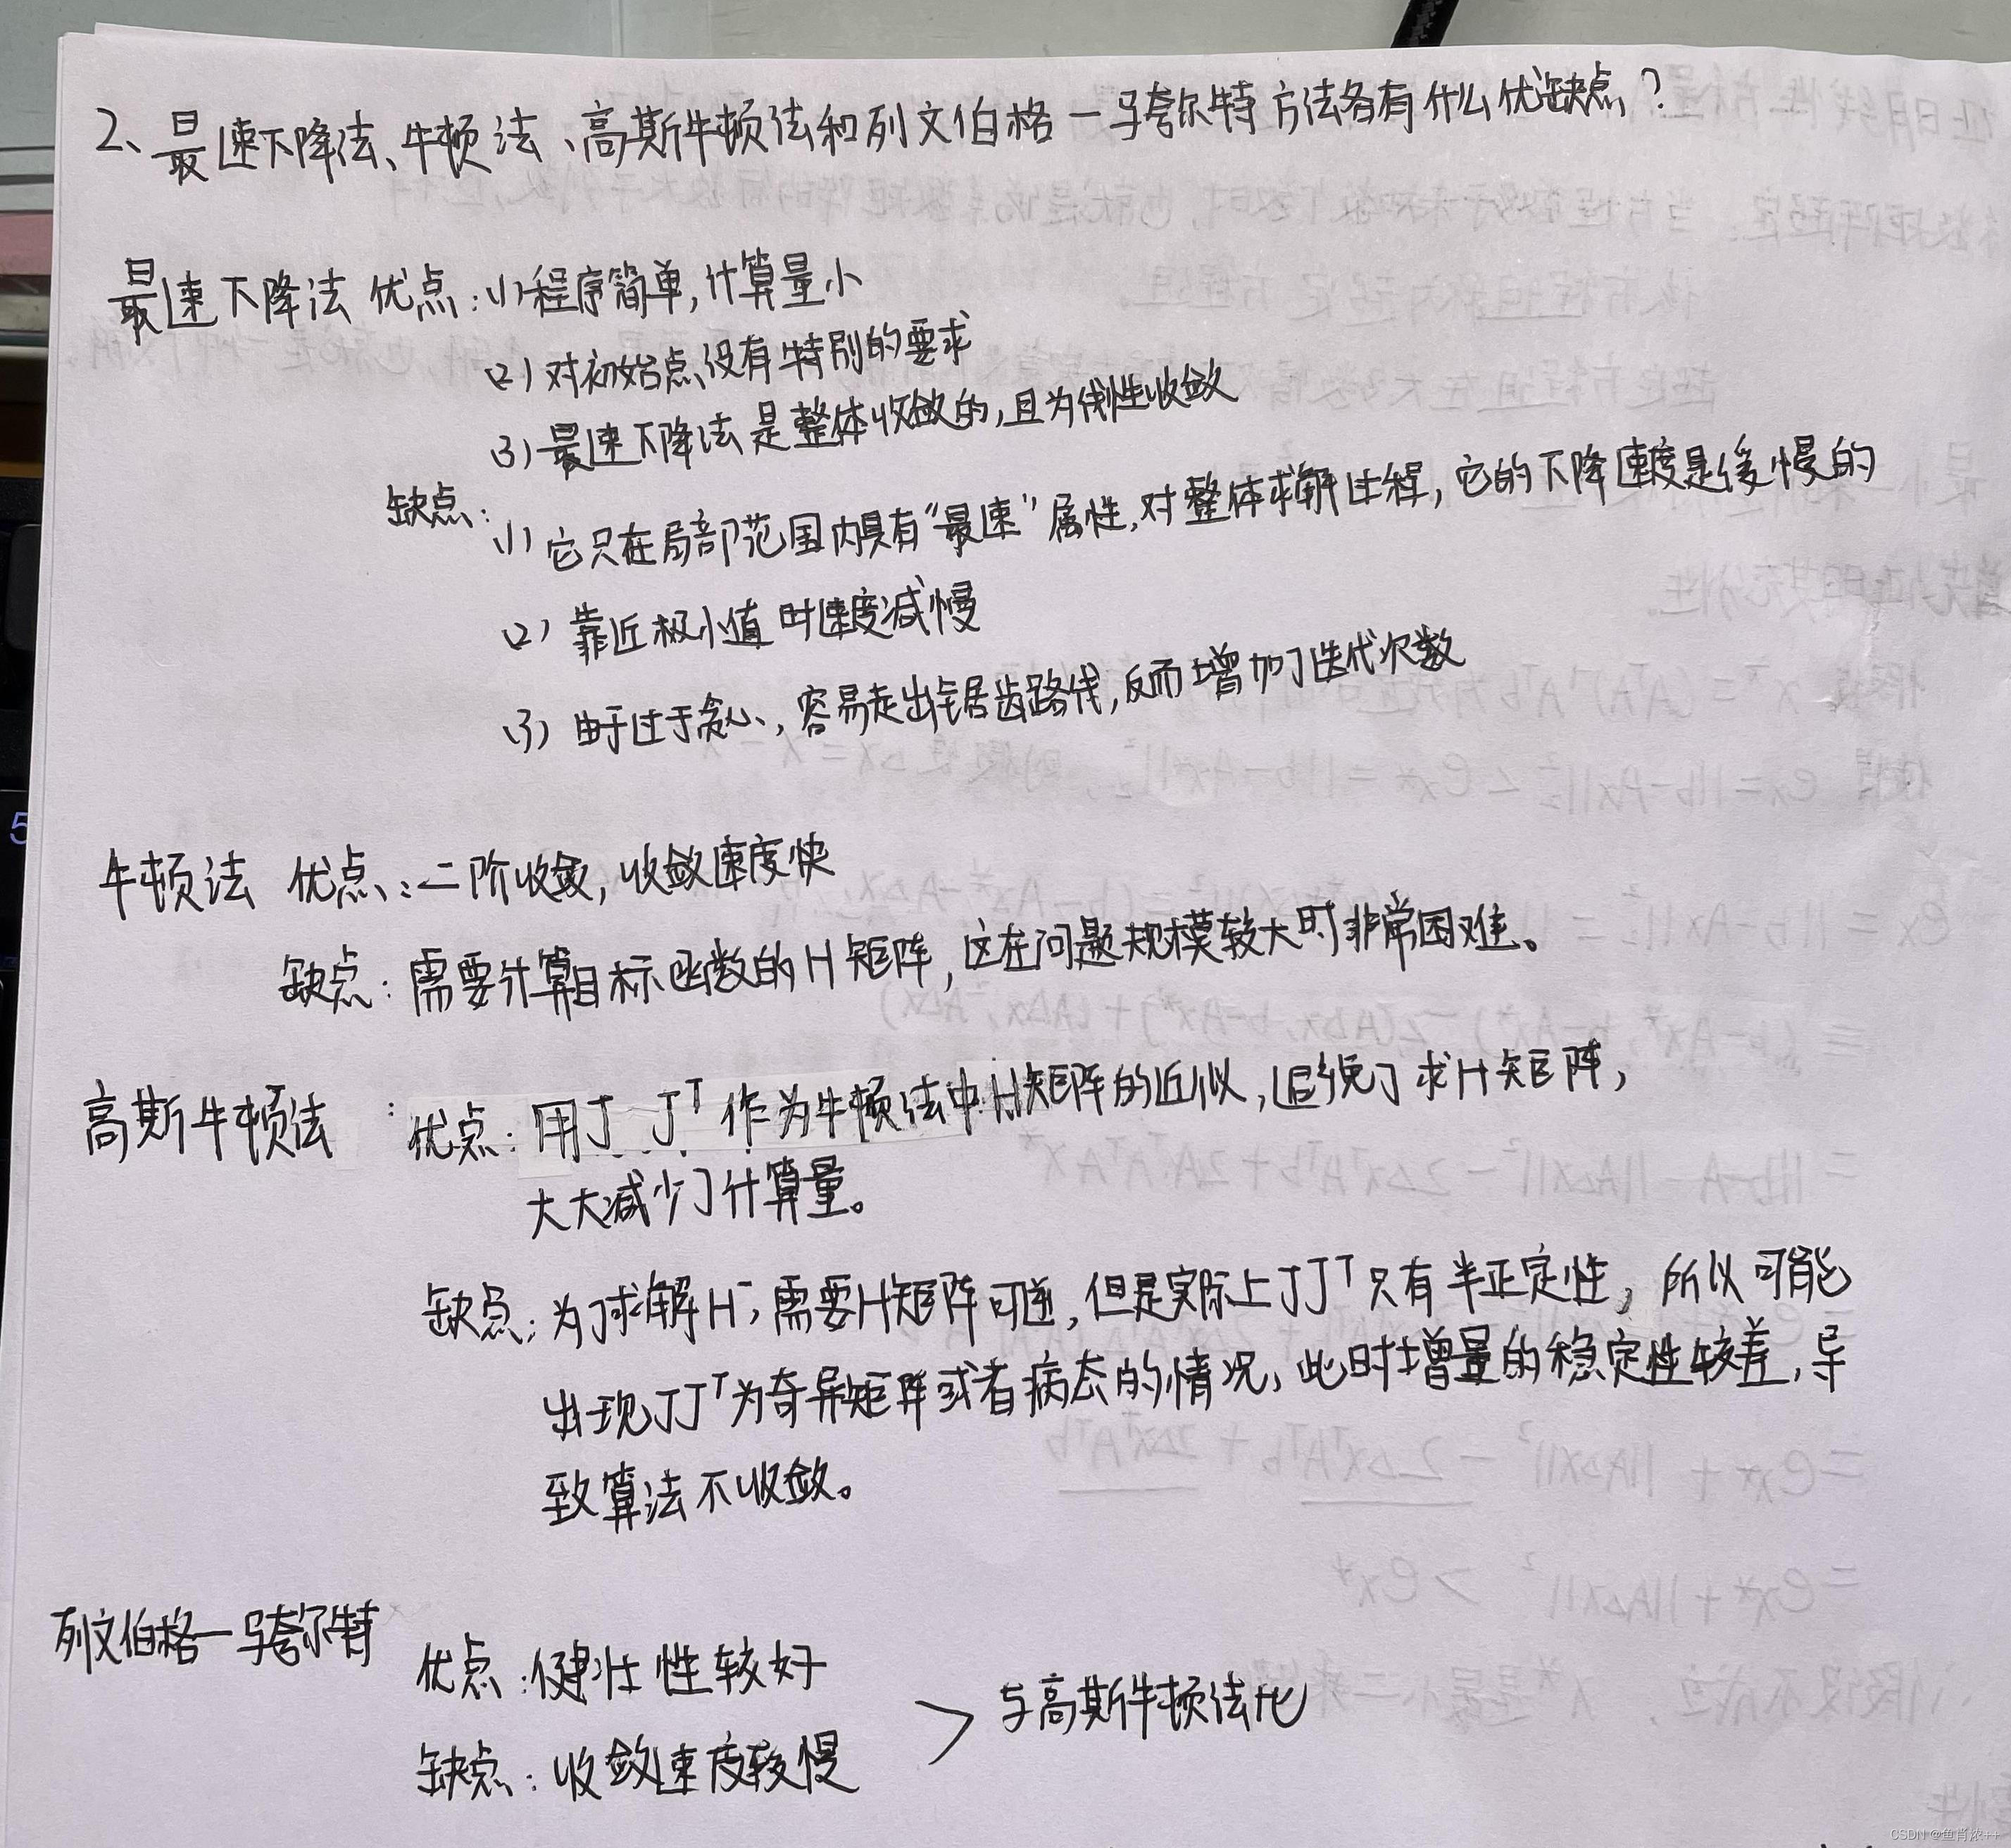 2、最速下降法、牛顿法、高斯牛顿法和列文伯格一马夸尔特方法各有什么优缺点?
最速下降法 优点:(1)程序简单,计算量小
(2)对初始点没有特别的要求
(3)最速下降法是整体收敛的,且为线性收敛
缺点:
(1)它只在局部范围内具有“最速”属性,对整体求解过程,它的下降速度是缓慢的
(2)靠近极小值时速度减慢
(3)由于过于贪心,容易走出锯齿路线,反而增加了迭代次数
牛顿法 优点:二阶收敛,收敛速度快
缺点:需要计算目标函数的H矩阵,这在问题规模较大时非常困难。
高斯牛顿法:优点:用J Jᵀ作为牛顿法中H矩阵的近似,避免了求H矩阵,
大大减少了计算量。
缺点:为了求解H⁻,需要H矩阵可逆,但是实际上JJᵀ只有半正定性,所以可能
出现JJᵀ为奇异矩阵或者病态的情况,此时增量的稳定性较差,导
致算法不收敛。
列文伯格一马夸尔特
优点:健壮性较好
与高斯牛顿法比
缺点:收敛速度较慢
5
CSDN @鱼肖浓++